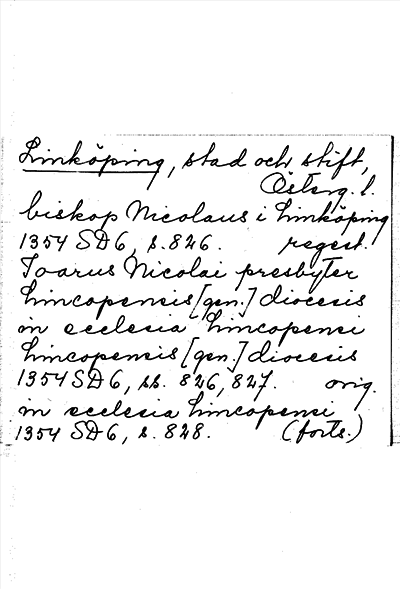 Linköping, stad och stift,
Österg. l.
biskop Nicolaus i Linköping
1354 SD6, s. 826. regest.
Ioarus Nicolai presbyter
lincopensis [gen.] diocesis
in ecclesia lincopensi
lincopensis [gen.] diocesis
1354 SD6, ss. 826, 827. orig.
in ecclesia lincopensi
1354 SD6, s. 828. (forts.)